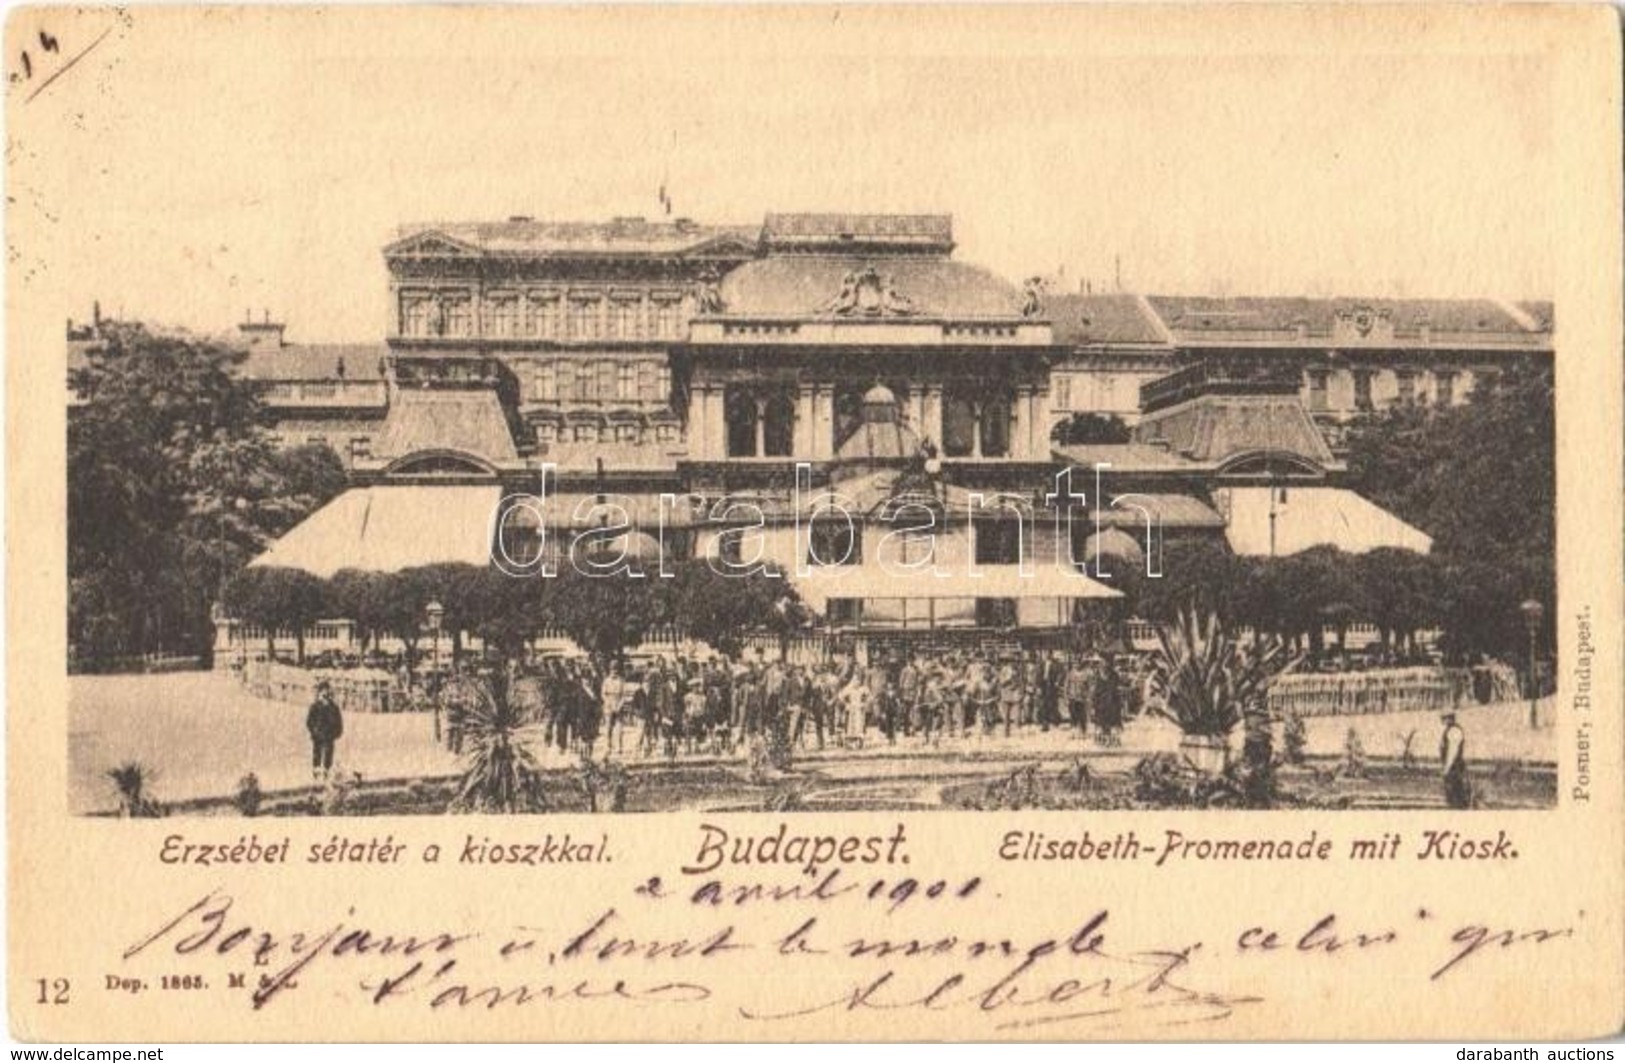 14
darabanth
Posner, Budapest.
Erzsébet sétatér a kioszkkal. Budapest. Elisabeth-Promenade mit Kiosk.
2 avril 1901.
Bonjour à tout le monde, celui qui
12 Dep. 1865. M & L
t'aime Albert
www.delcampe.net darabanth auctions